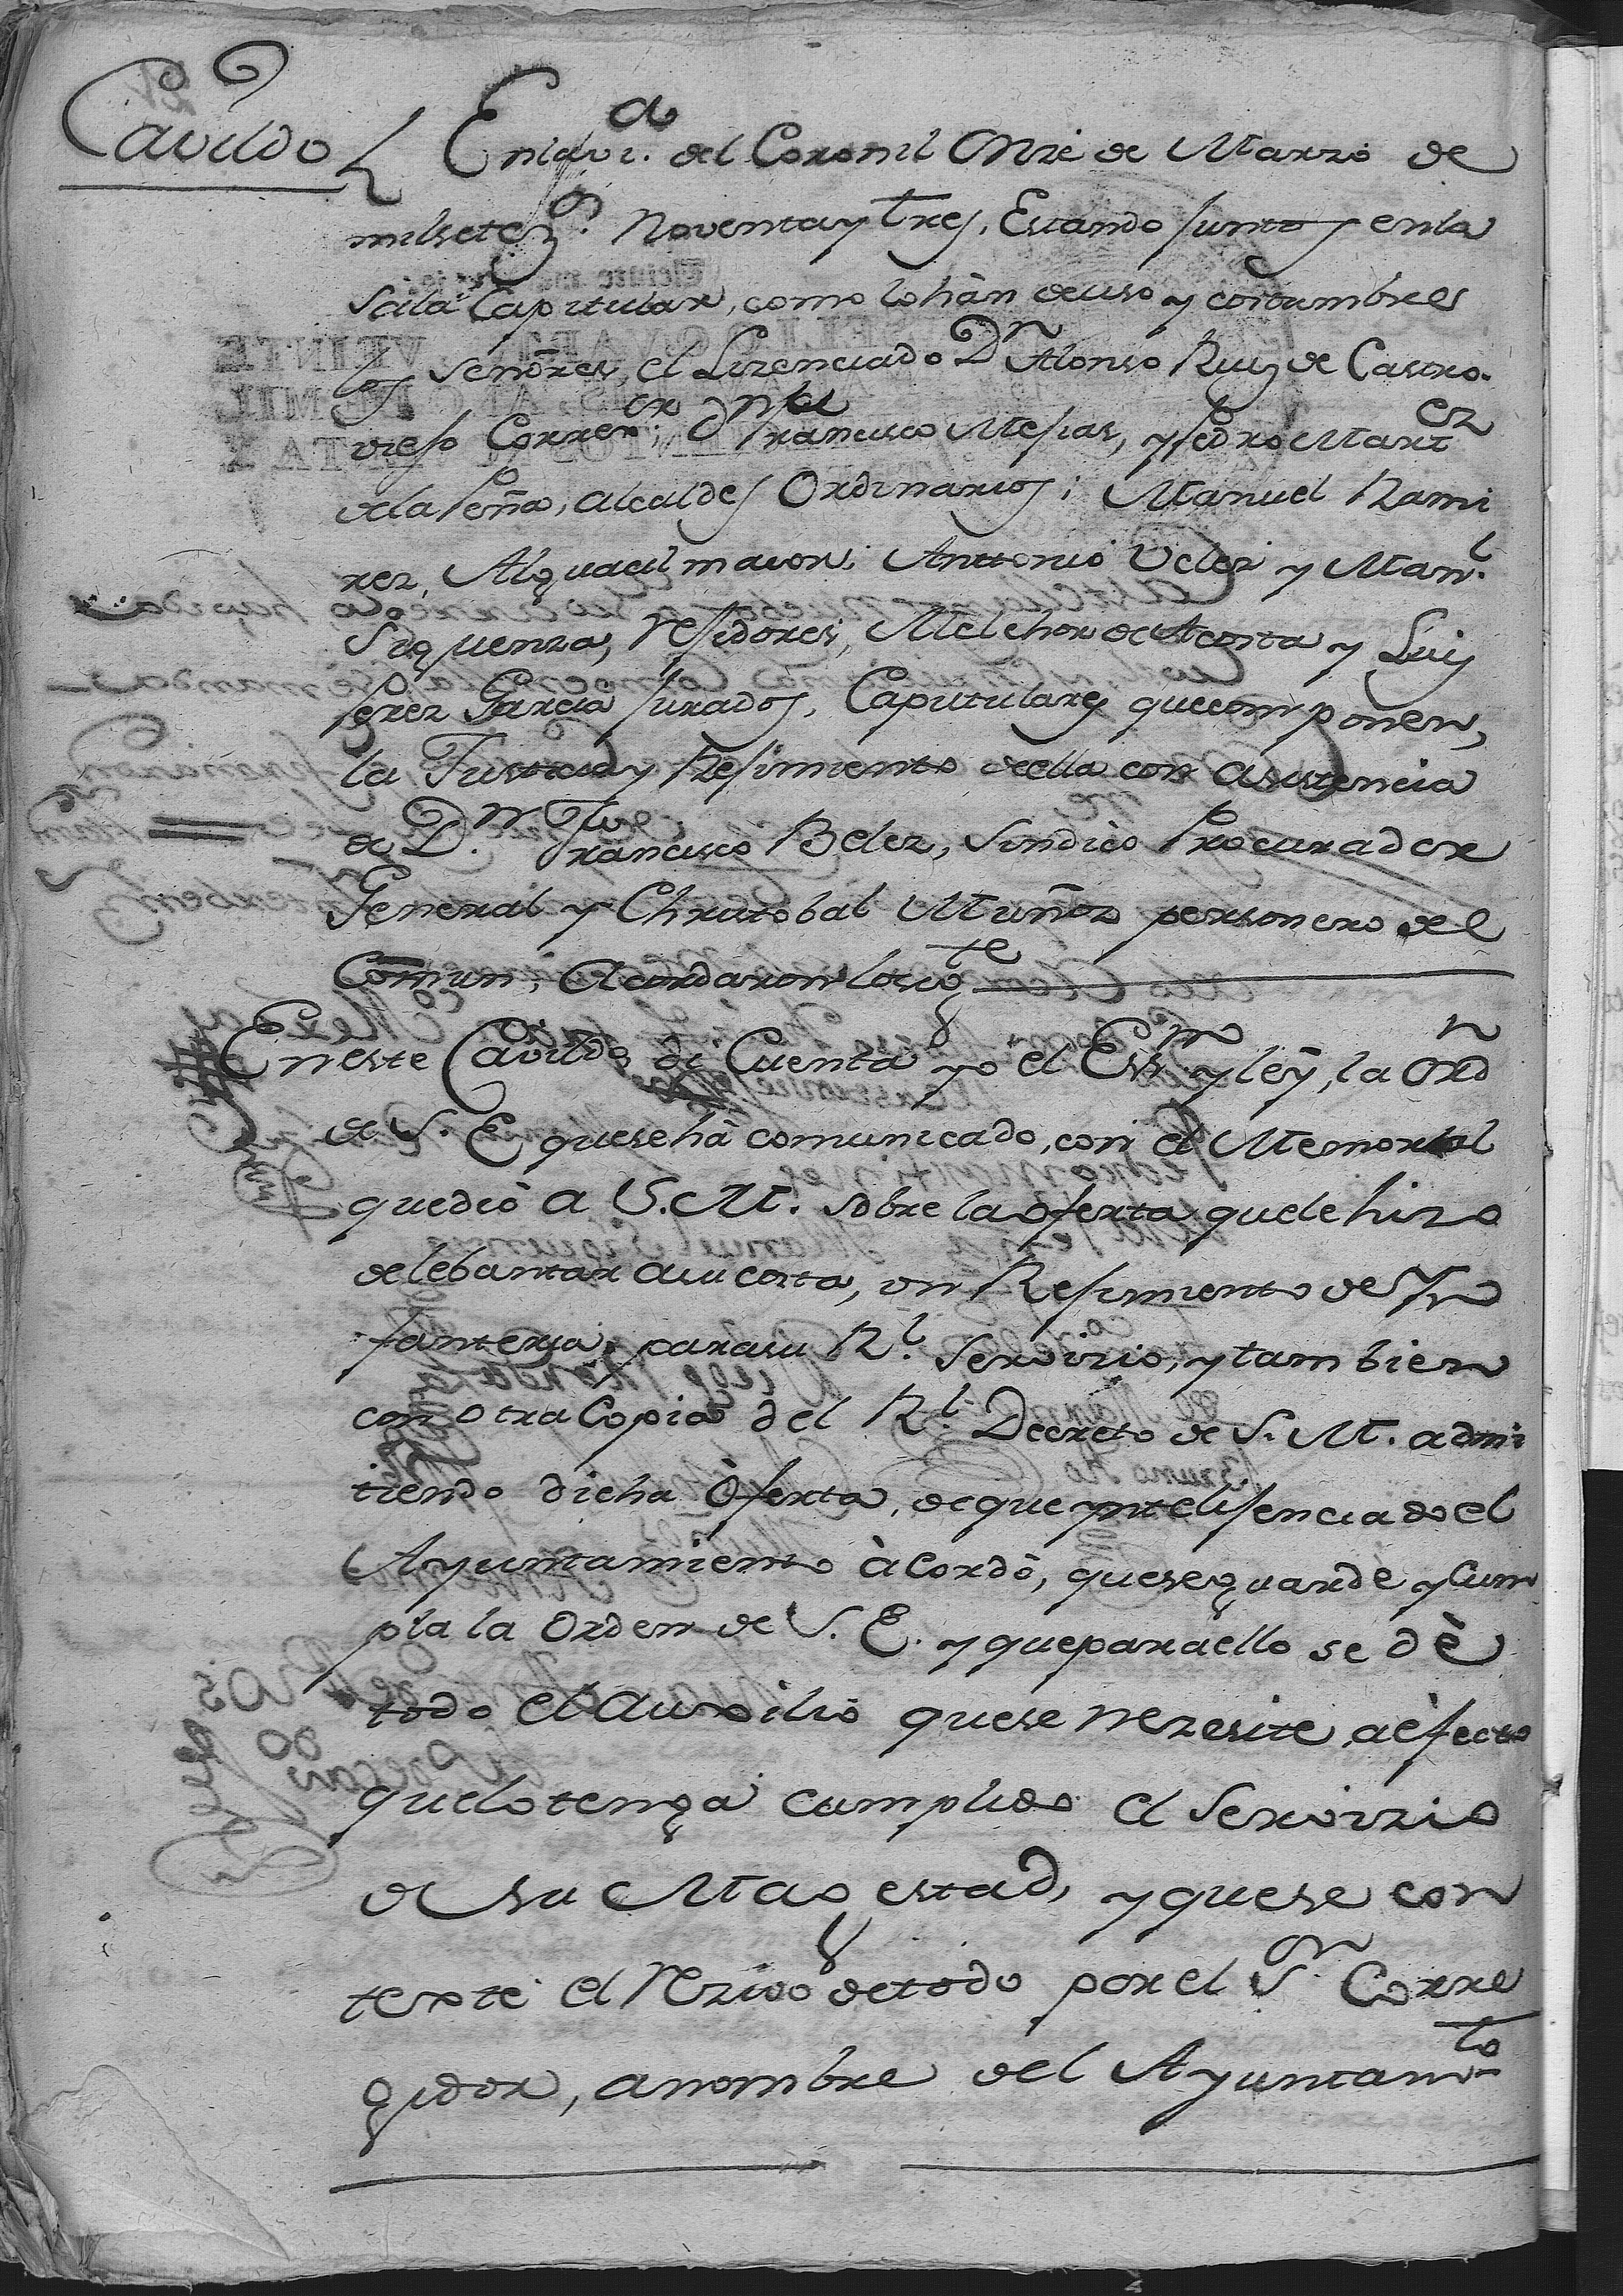 Cavildo
En la v.ª del Coronil Onze de Marzo de
milsetez.s Noventa y tres, Estando Juntos en la
Sala Capitular, como lo hàn de uso y costumbre
los Señores, el Lizenciado Dn Alonso Ruiz de Castro-
viejo Correxor; Dn Francisco Mesias, y Pedro Martez
de la Peña, Alcaldes Ordinarios; Manuel Rami
rez, Alguacil maior; Anttonio Velez y Man.l
Siguenza, Rexidores, Melchor de Acosta y Luis
Perez Garcia Jurados, Capitulares que componen
la Justicia y Resimiento de ella con asistencia
de D.n Francisco Belez, Sindico Procurador
General y Christobal Muñoz personero del
Comun; Acordaron lo sigte
En este Cavildo di Cuenta yo el Essno y leý, la Ordn
de S. E que se hà comunicado, con el Memorial
que diò a S. M. sobre la oferta que le hizo
de lebantar a su costa, un Resimiento de Yn
fanteria, para su R.l Servizio, y tambien
con otra Copia del R.l Decreto de S. M. admi
tiendo dicha Òferta, de que yntelisenciado el
Ayuntamiento àcordò, que se guarde y Cum
pla la Orden de S. E. y que para ello se dè
todo el Auxilio que se nezesite, a èfecto
que lo tenga cumplido el Servizio
de su Magestad, y que se con
texte el Rezivo de todo por el S.or Corre
gidor, a nombre del Ayuntamto